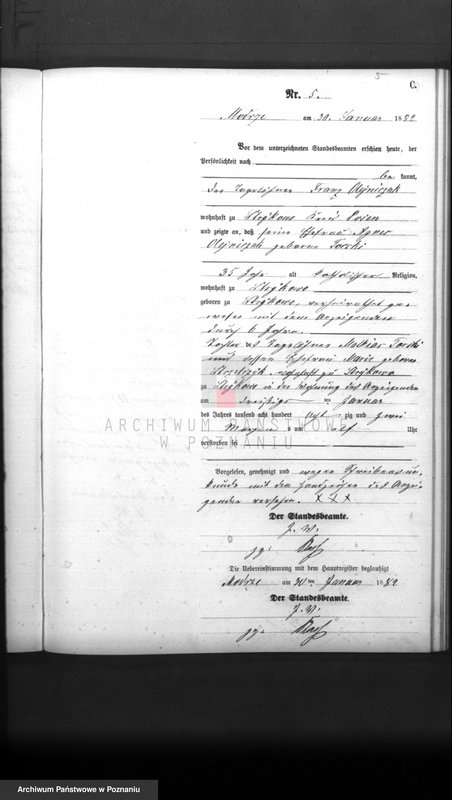 5
C.
Nr. 5.
Modrze am 30. Januar 1882
Vor dem unterzeichneten Standesbeamten erschien heute, der
Persönlichkeit nach
be kannt,
der Tagelöhner Franz Olejniczak
wohnhaft zu Strykowo Kreis Posen
und zeigte an, daß seine Ehefrau Agnes
Olejniczak geborne Torski
35 Jahr alt katholischer Religion,
wohnhaft zu Strykowo
geboren zu Strykowo, verheirathet ge-
wesen mit dem Anzeigenden
durch 6 Jahre.
Tochter des Tagelöhners Mathias Torski
und dessen Ehefrau Marie geborne
wohnhaft zu Strykowo
zu Strykowo in der Wohnung des Anzeigenden
am dreißigsten Januar
des Jahres tausend acht hundert acht zig und zwei
Morgens um elf Uhr
verstorben sei
Vorgelesen, genehmigt und wegen Schreibensun-
kunde mit dem Handzeichen des Anzei-
genden versehen. X X X
Der Standesbeamte.
J. V.
gez.
Die Uebereinstimmung mit dem Hauptregister beglaubigt
Modrze am 30ten Januar 1882
Der Standesbeamte.
J. V.
gez.
ARCHIWUM PAŃSTWOWE
W POZNANIU
Archiwum Państwowe w Poznaniu